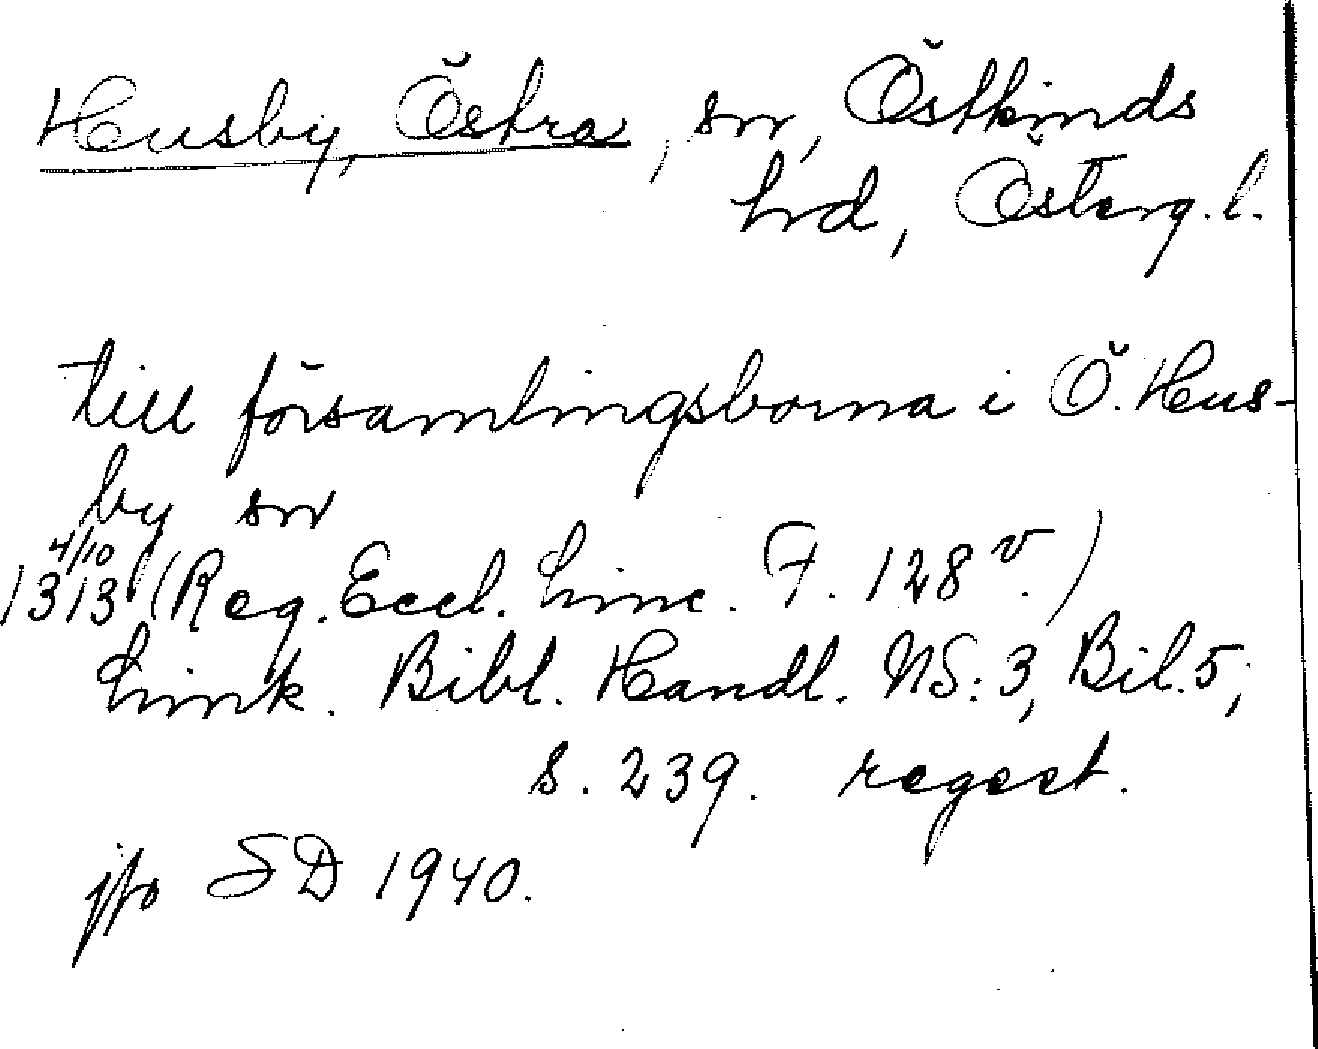 Husby, Östra, sn, Östkinds
hd, Österg. l.
till församlingsborna i Ö. Hus-
by sn
1313 4/10 (Reg. Eccl. Linc. F. 128 v.)
Link. Bibl. Handl. NS: 3, Bil. 5,
s. 239. regest.
jfr SD 1940.